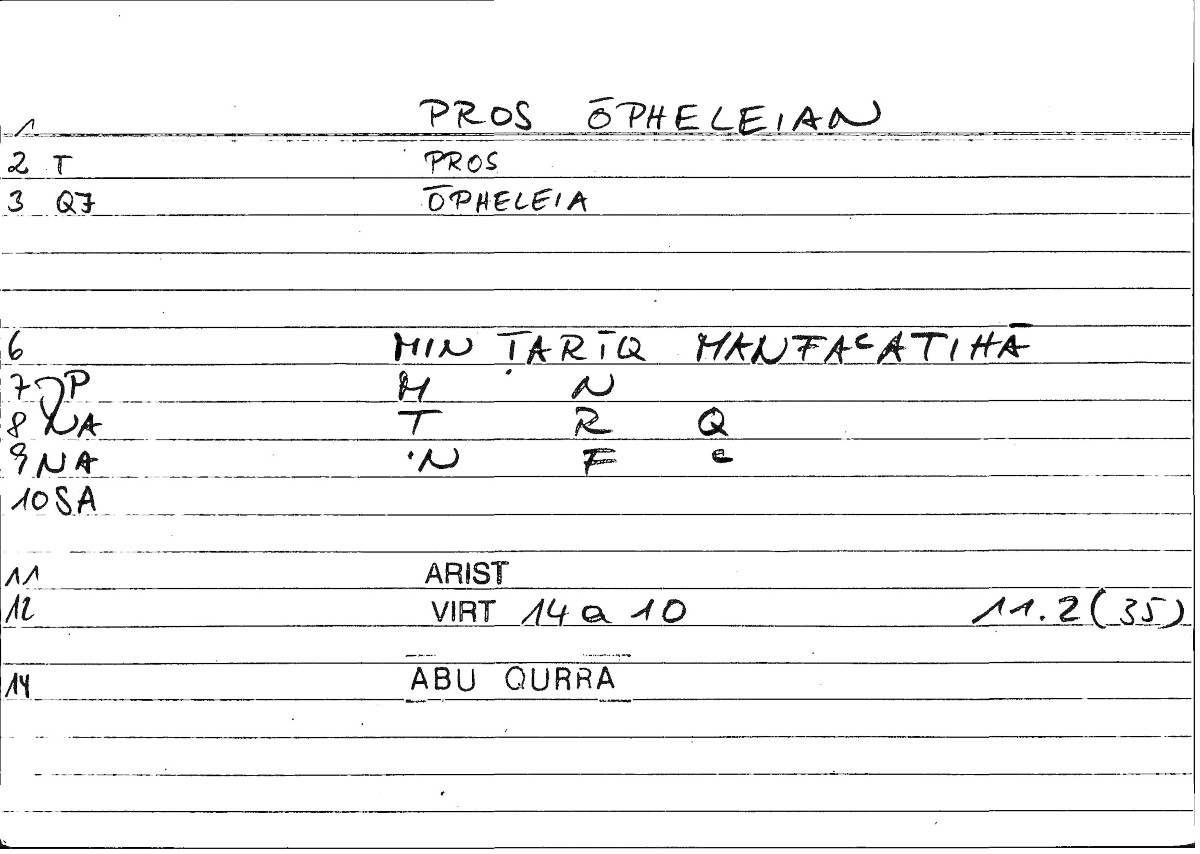 1 PROS ŌPHELEIAN
2 T PROS
3 Q7 ŌPHELEIA
6 MIN ṬARĪQ MANFAᶜATIHĀ
7 P M N
8 NA T R Q
9 NA N F ᶜ
10 SA
11 ARIST
12 VIRT 14 a 10 11.2 (35)
14 ABU QURRA